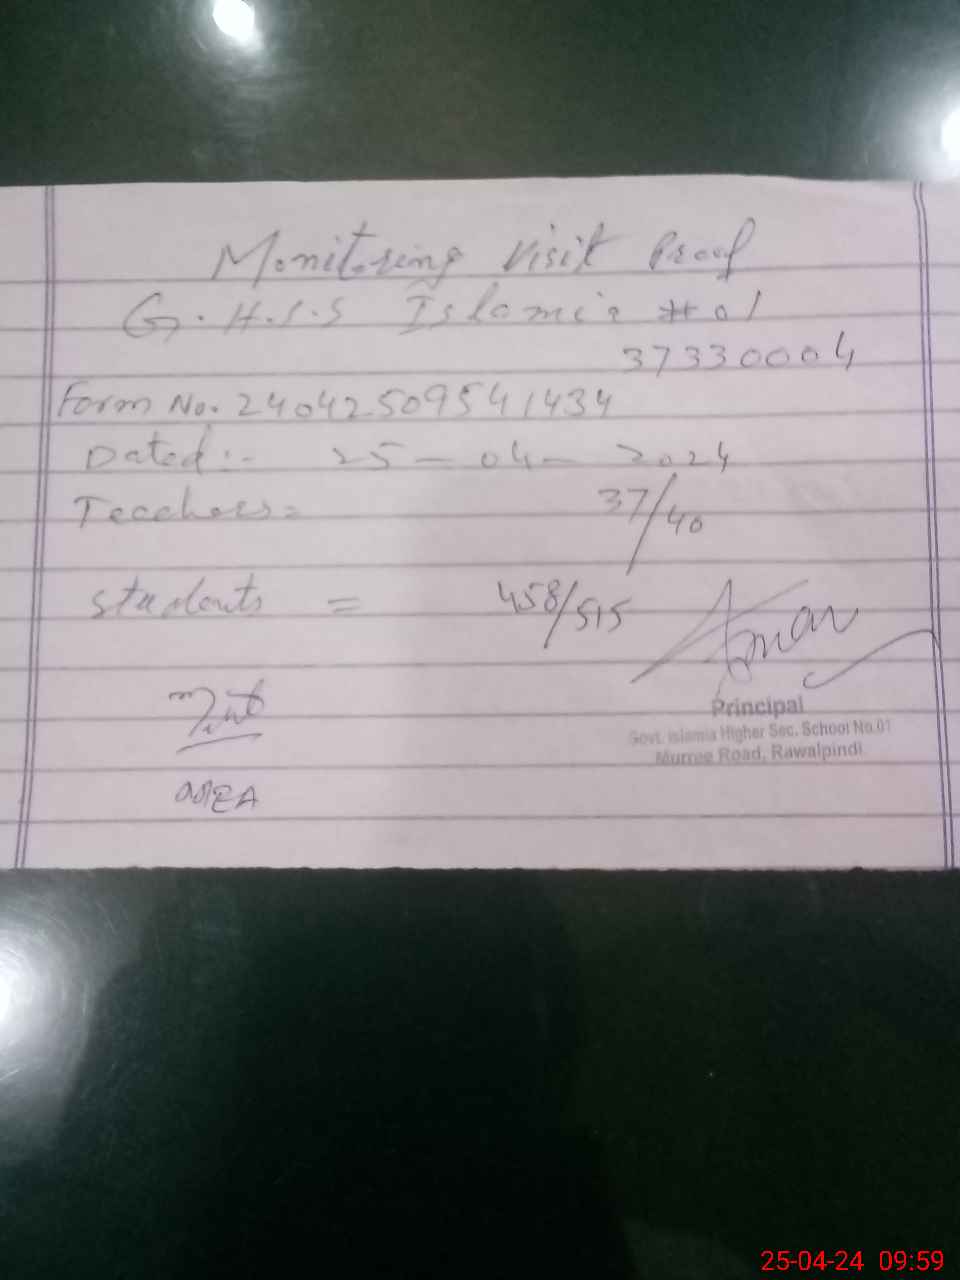 Monitoring Visit Proof
G.H.S.S Islamia # 01
37330004
Form No. 24042509541434
Dated:- 25-04-2024
Teachers= 37/40
Students = 458/515
Principal
Govt. Islamia Higher Sec. School No.01
Murree Road, Rawalpindi
25-04-24 09:59